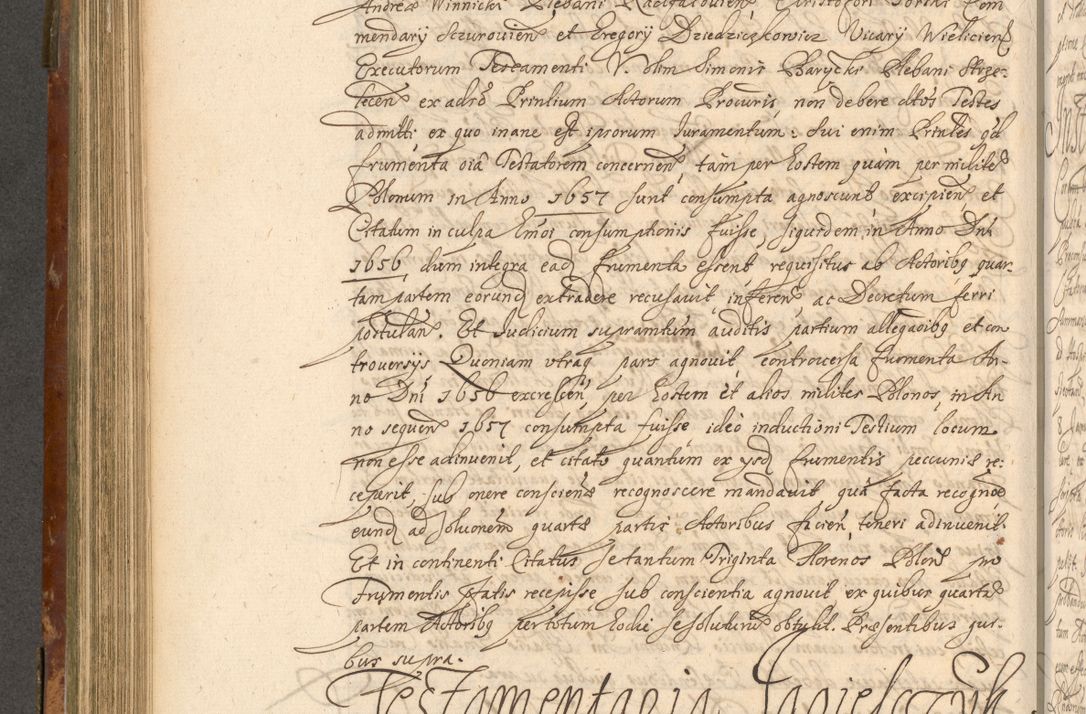 Andreæ Winnicki Plebani Christophori Com
mendarÿ Szurovien et Gregorÿ Dziedzickowicz Vicarÿ Wieliciens
Executorum Testamenti V. olim Simonis Barycki Plebani Strze-
lecen ex adso Prinlium Actorum Procuris non debere dtos Testes
admitti ex quo inane est ipsorum Juramentum. Sui enim Prinles qd
frumenta oia Testatorem concernen tam per hostem quam per milite
Polonum in Anno 1657 sunt consumpta agnoscunt excipien et
Citatum in culpa hmoi consumptionis fuisse, siquidem in Anno Dni
1656 dum integra ead frumenta essent requisitus ab Actoribq quar-
tam partem eorund extradere recusavit inferen ac Decretum ferri
postulan. Et Judicium supramtum auditis partium allegaoibq et con
troversÿs Quoniam utraq pars agnovit controversa frumenta An-
no Dni 1656 excrescen per hostem et alios milites Polonos, in An
no sequen 1657 consumpta fuisse ideo inductioni Testium locum
non esse adinvenit, et citato quantum ex ysd frumentis peccuniæ re:
ceperit, sub onere conscien recognoscere mandavit qua facta recogne
eund ad solutionem quartæ partis Actoribus facien teneri adinvenit.
Et in continenti Citatus se tantum Triginta Florenos Polon pro
frumentis ptatis recepisse sub conscientia agnovit ex quibus quartæ
partem Actoribq per totum hodie se soluturum obtulit. Præsentibus qui-
bus supra.
Testamentaria